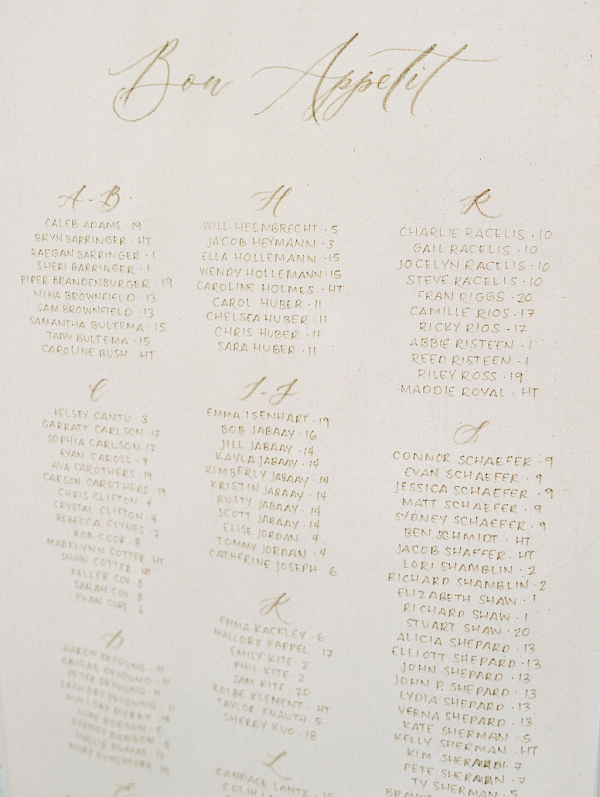 Bon Appétit
A-B
CALEB ADAMS · 19
BRYN BARRINGER · HT
RAEGAN BARRINGER · 1
SHERI BARRINGER · 1
PIPER BRANDENBURGER · 19
NINA BROWNFIELD · 13
SAM BROWNFIELD · 13
SAMANTHA BULTEMA · 15
TAMI BULTEMA · 15
CAROLINE BUSH · HT
C
KELSEY CANTU · 3
GARRATT CARLSON · 17
SOPHIA CARLSON · 17
RYAN CAROLL · 9
AVA CAROTHERS · 19
CARSON CAROTHERS · 19
CHRIS CLIFTON · 4
CRYSTAL CLIFTON · 4
REBECCA CLYNES · 7
ROB COOK · 8
MADELYNN COTTER · HT
SHAW COTTER · HT
KELLER COY · 8
SARAH COY · 8
EVAN
D
AARON DEYOUNG · 11
ABIGAIL DEYOUNG · 11
PETER DEYOUNG · 11
ZACHARY DEYOUNG · 11
MALLORY
H
WILL HELMBRECHT · 5
JACOB HEYMANN · 3
ELLA HOLLEMANN · 15
WENDY HOLLEMANN · 15
CAROLINE HOLMES · HT
CAROL HUBER · 11
CHELSEA HUBER · 11
CHRIS HUBER · 11
SARA HUBER · 11
I-J
EMMA ISENHART · 19
BOB JABAAY · 16
JILL JABAAY · 14
KAYLA JABAAY · 14
KIMBERLY JABAAY · 14
KRISTIN JABAAY · 14
RUSTY JABAAY · 14
SCOTT JABAAY · 14
ELISE JORDAN · 4
TOMMY JORDAN · 4
CATHERINE JOSEPH · 6
K
EMMA KACKLEY · 6
MALLORY KAPPEL · 17
EMILY KITE · 2
PHIL KITE · 2
SAM KITE · 20
KOLBE KLEMENT · HT
TAYLOR KNAUTH · 5
SHERRY KUO · 18
L
CANDACE LANTZ
R
CHARLIE RACELIS · 10
GAIL RACELIS · 10
JOCELYN RACELIS · 10
STEVE RACELIS · 10
FRAN RIGGS · 20
CAMILLE RIOS · 17
RICKY RIOS · 17
ABBIE RISTEEN · 1
REED RISTEEN · 1
RILEY ROSS · 19
MADDIE ROYAL · HT
S
CONNOR SCHAEFER · 9
EVAN SCHAEFER · 9
JESSICA SCHAEFER · 9
MATT SCHAEFER · 9
SYDNEY SCHAEFER · 9
BEN SCHMIDT · HT
JACOB SHAFFER · HT
LORI SHAMBLIN · 2
RICHARD SHAMBLIN · 2
ELIZABETH SHAW · 1
RICHARD SHAW · 1
STUART SHAW · 20
ALICIA SHEPARD · 13
ELLIOTT SHEPARD · 13
JOHN SHEPARD · 13
JOHN P. SHEPARD · 13
LYDIA SHEPARD · 13
VERNA SHEPARD · 13
KATE SHERMAN · 5
KELLY SHERMAN · HT
KIM SHERMAN · 7
PETE SHERMAN · 7
TY SHERMAN · 5